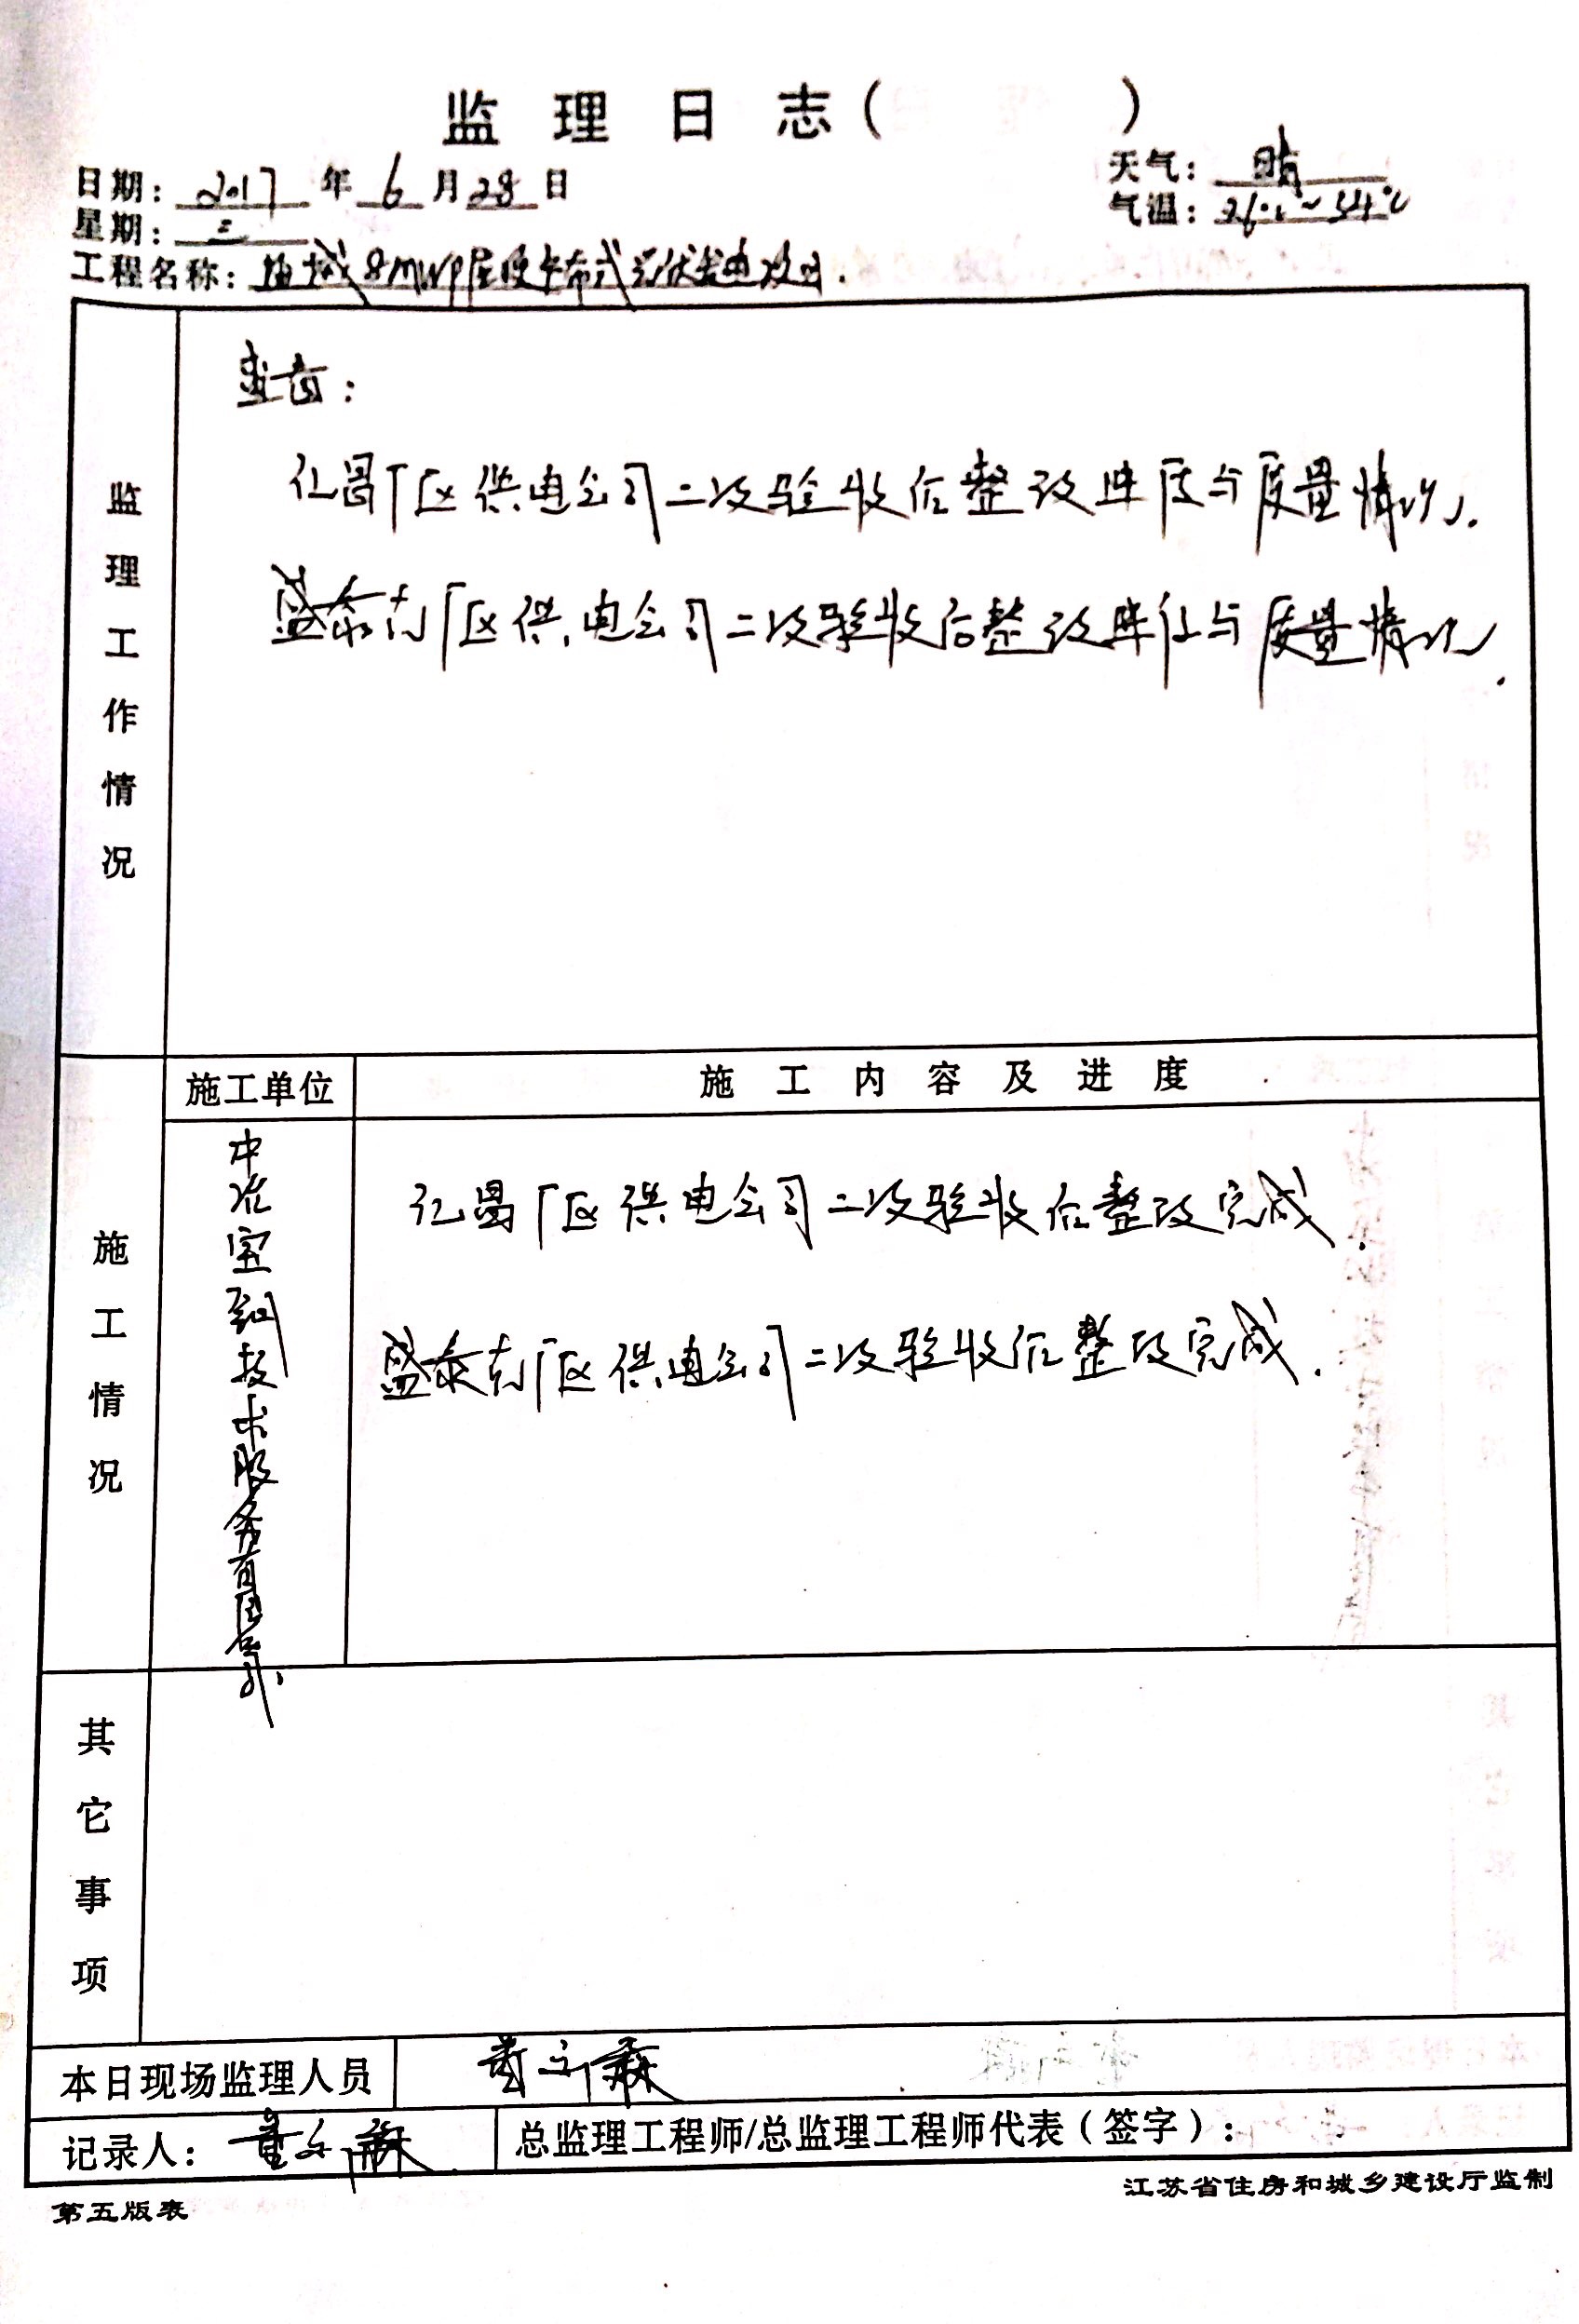 监理日志( )
日期: 2017 年 6 月 28 日
天气: 晴
星期: 三
气温: 26℃~34℃
工程名称: 盐城8MWp屋顶分布式光伏发电项目.
监理工作情况
查看:
亿昌厂区供电公司二次验收后整改进度与质量情况.
盛泰南厂区供电公司二次验收后整改进度与质量情况.
施工情况
施工单位
施工内容及进度
技术服务有限公司
亿昌厂区供电公司二次验收后整改完成.
盛泰南厂区供电公司二次验收后整改完成.
其它事项
本日现场监理人员
记录人:
总监理工程师/总监理工程师代表(签字):
第五版表
江苏省住房和城乡建设厅监制